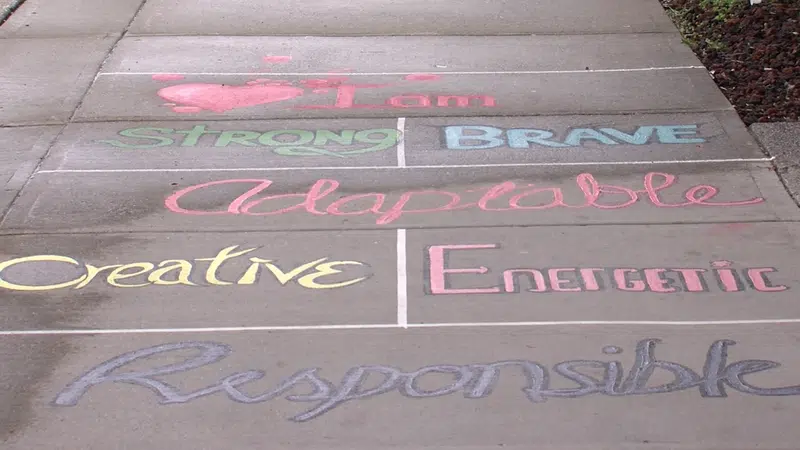 I am
STRONG BRAVE
Adaptable
Creative ENERGETIC
Responsible